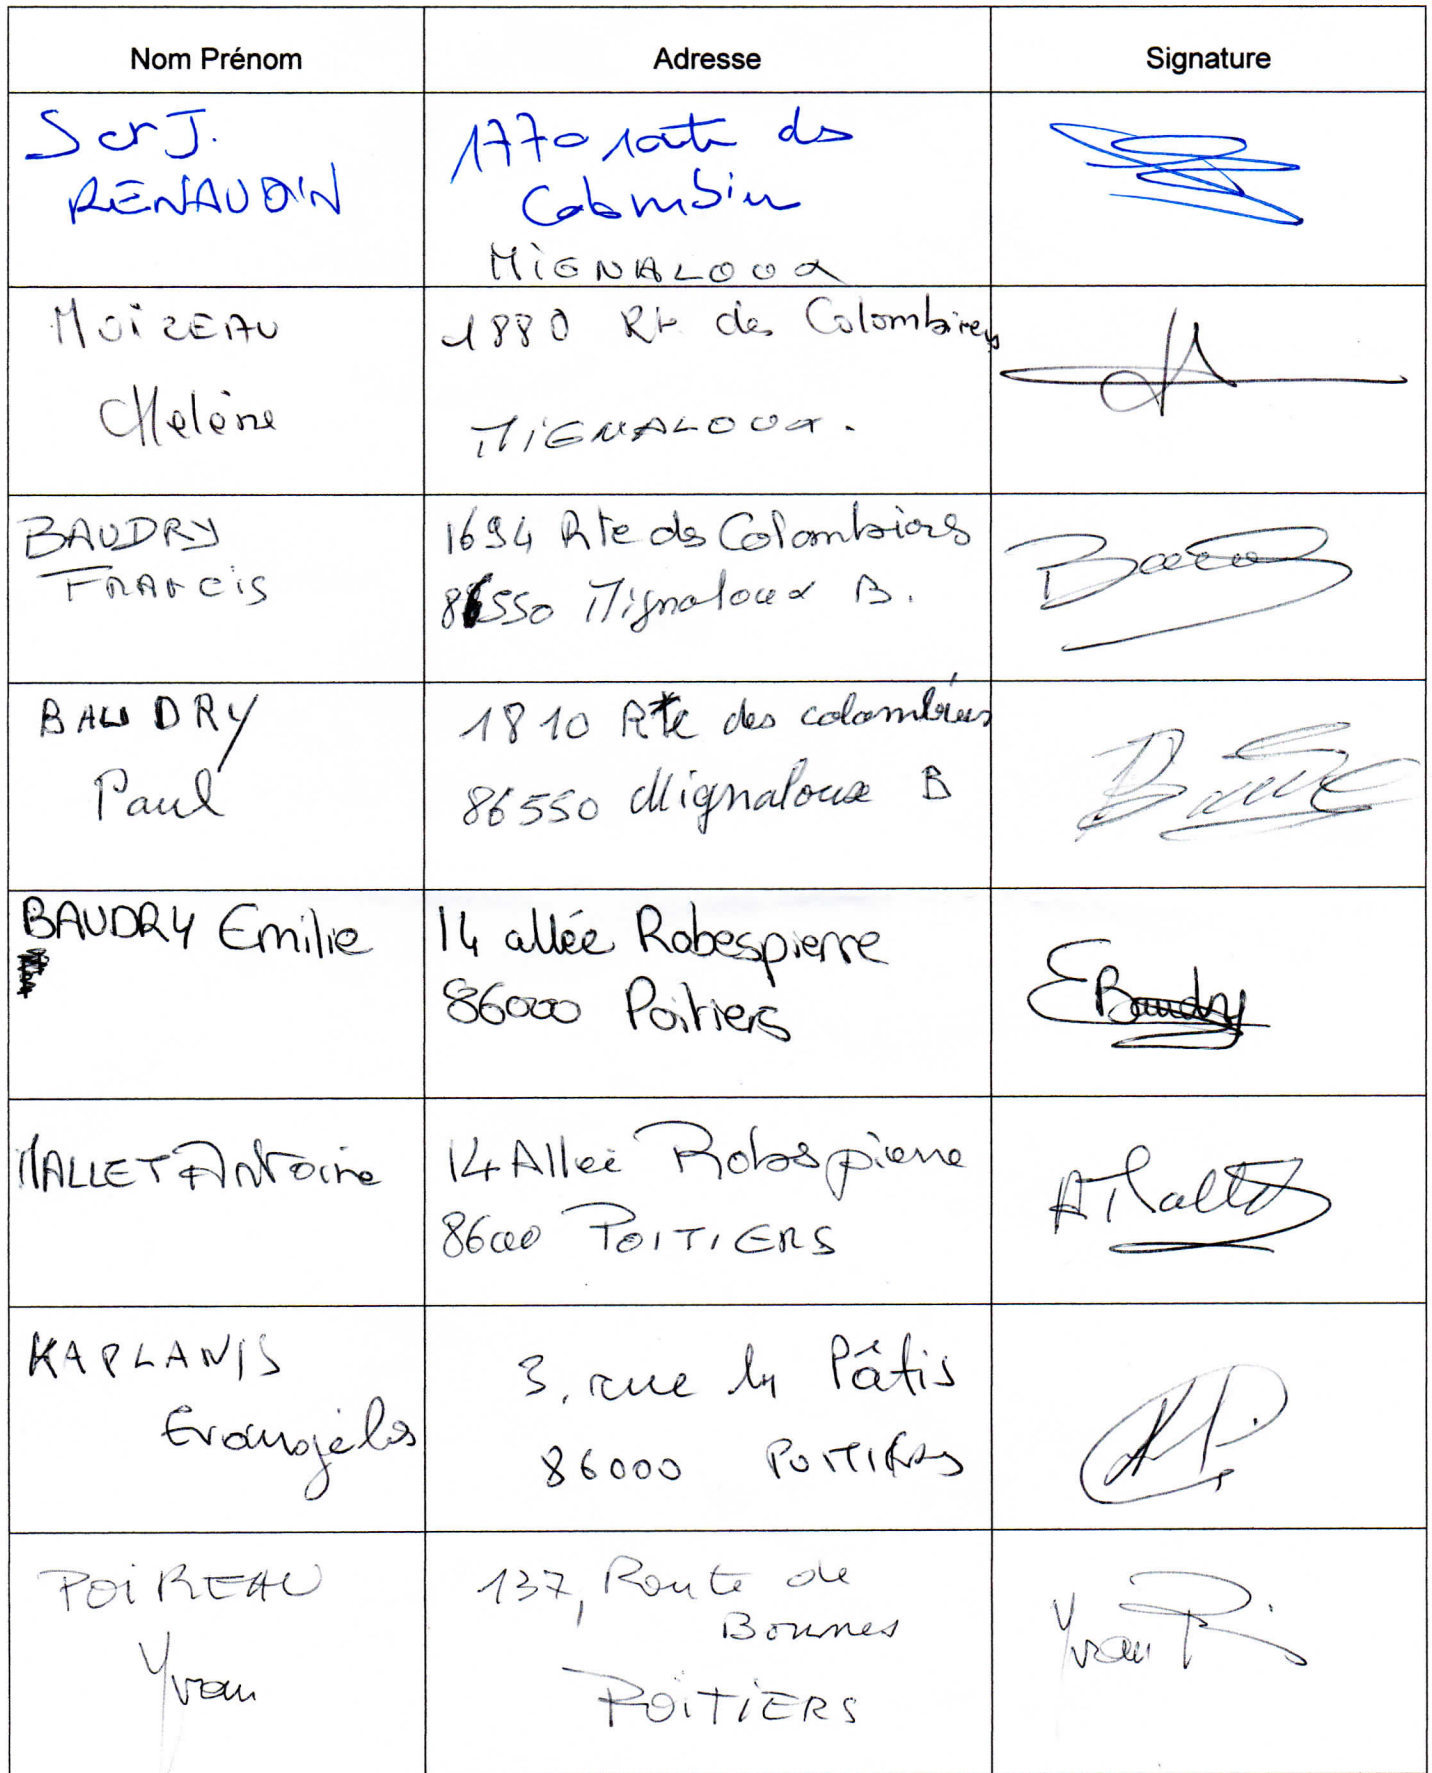 Nom Prénom
Adresse
Signature
J.
RENAUDIN
1770 route des
Colombiers
MIGNALOUX
MOIZEAU
Hélène
1880 Rte des Colombiers
MIGNALOUX.
BAUDRY
FRANCIS
1694 Rte des Colombiers
86550 Mignaloux B.
BAUDRY
Paul
1810 Rte des colombiers
86550 Mignaloux B
BAUDRY Emilie
14 allée Robespierre
86000 Poitiers
E Baudry
MALLET Antoine
14 Allée Robespierre
86000 POITIERS
A Mallet
KAPLANIS
Evangélos
3, rue du Pâtis
86000 POITIERS
POIREAU
Yvan
137, Route de
Bonnes
POITIERS
Yvan